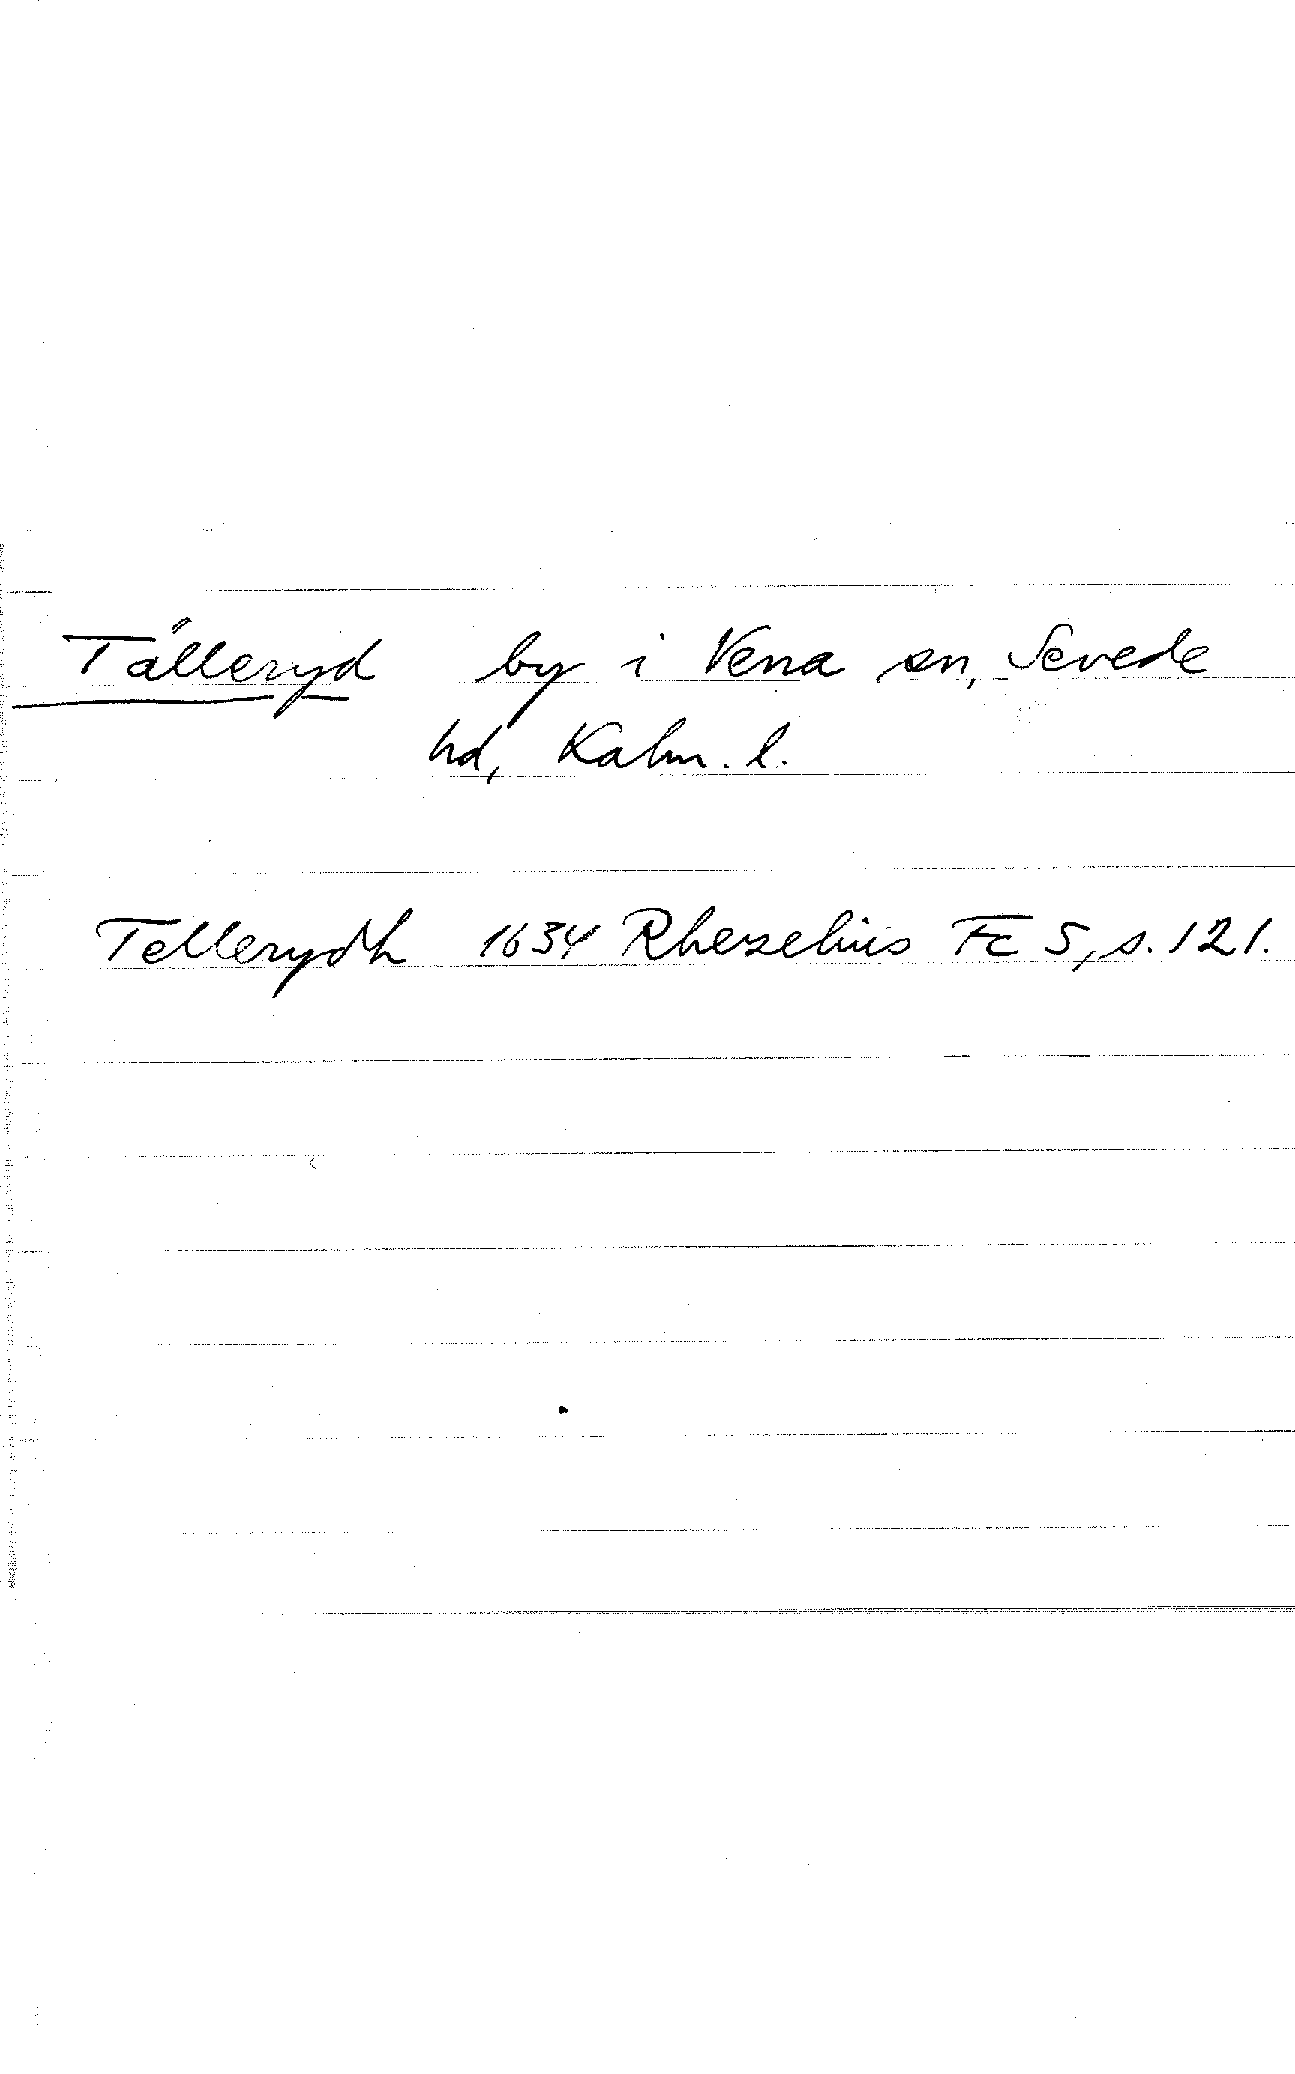 Tälleryd by i Vena sn, Sevede
hd, Kalm. l.
Tellerydh 1634 Rhezelius Fc 5, s. 121.